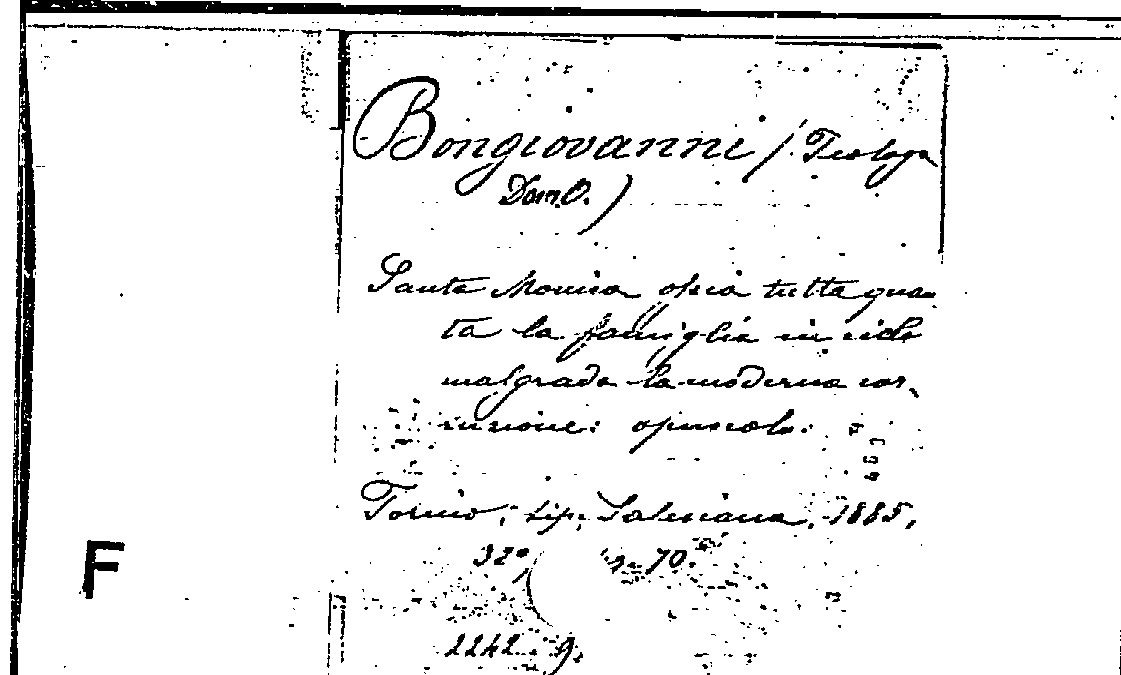 Bongiovanni (Teologo
Dom.º)
Santa Monica ossia tutta quan
ta la famiglia in cielo
malgrado la moderna cor-
ruzione: opuscolo.
Torino, tip. Salesiana, 1885,
32º, p. 70.
F
2242. 9.